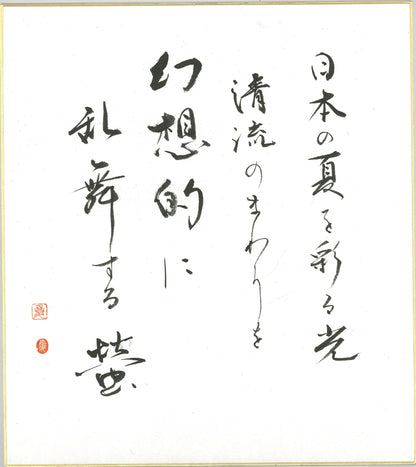 日本の夏を彩る光
清流のまわりを
幻想的に
乱舞する蛍